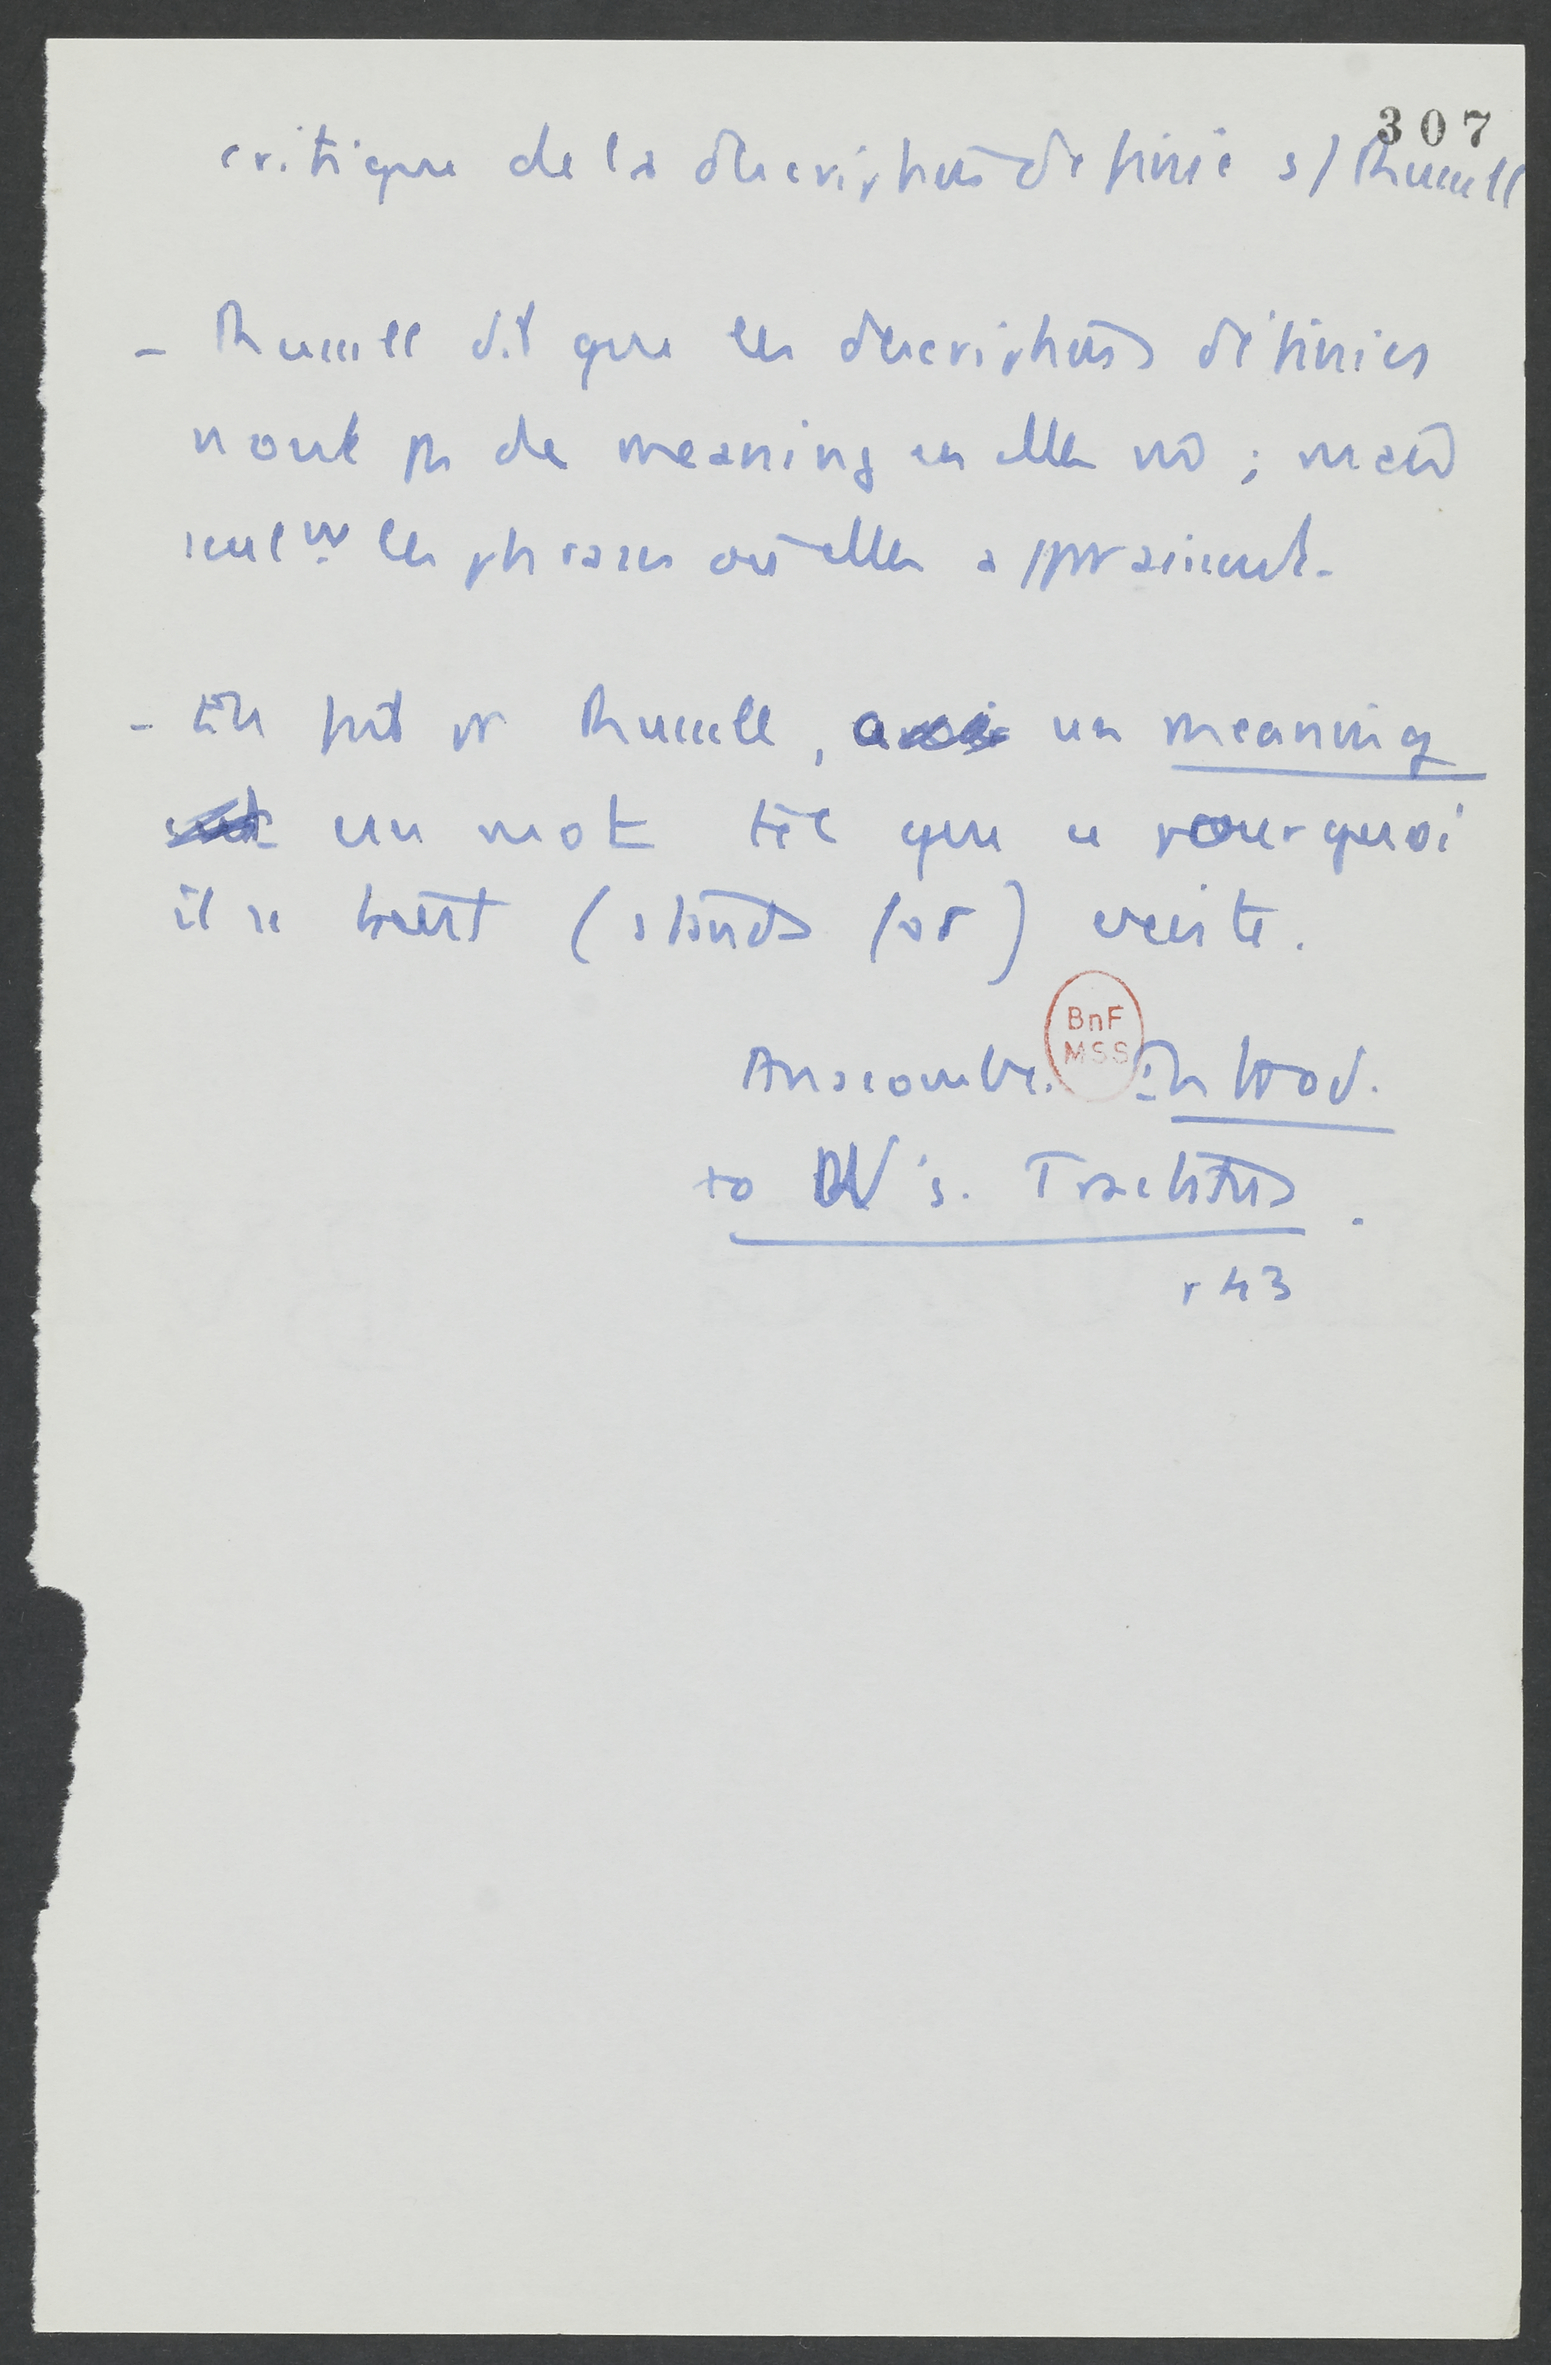 307
critique de la description définie s/ Russell
- Russell dit que les descriptions définies
n'ont pas de meaning en elles-m ; mais
seulmt les phrases où elles apparaissent.
- En fait pr Russell, a un meaning
un mot tel que ce pour quoi
il se tient (stands for) existe.
BnF
MSS
Anscombe. Introd.
to W's. Tractatus.
p 43